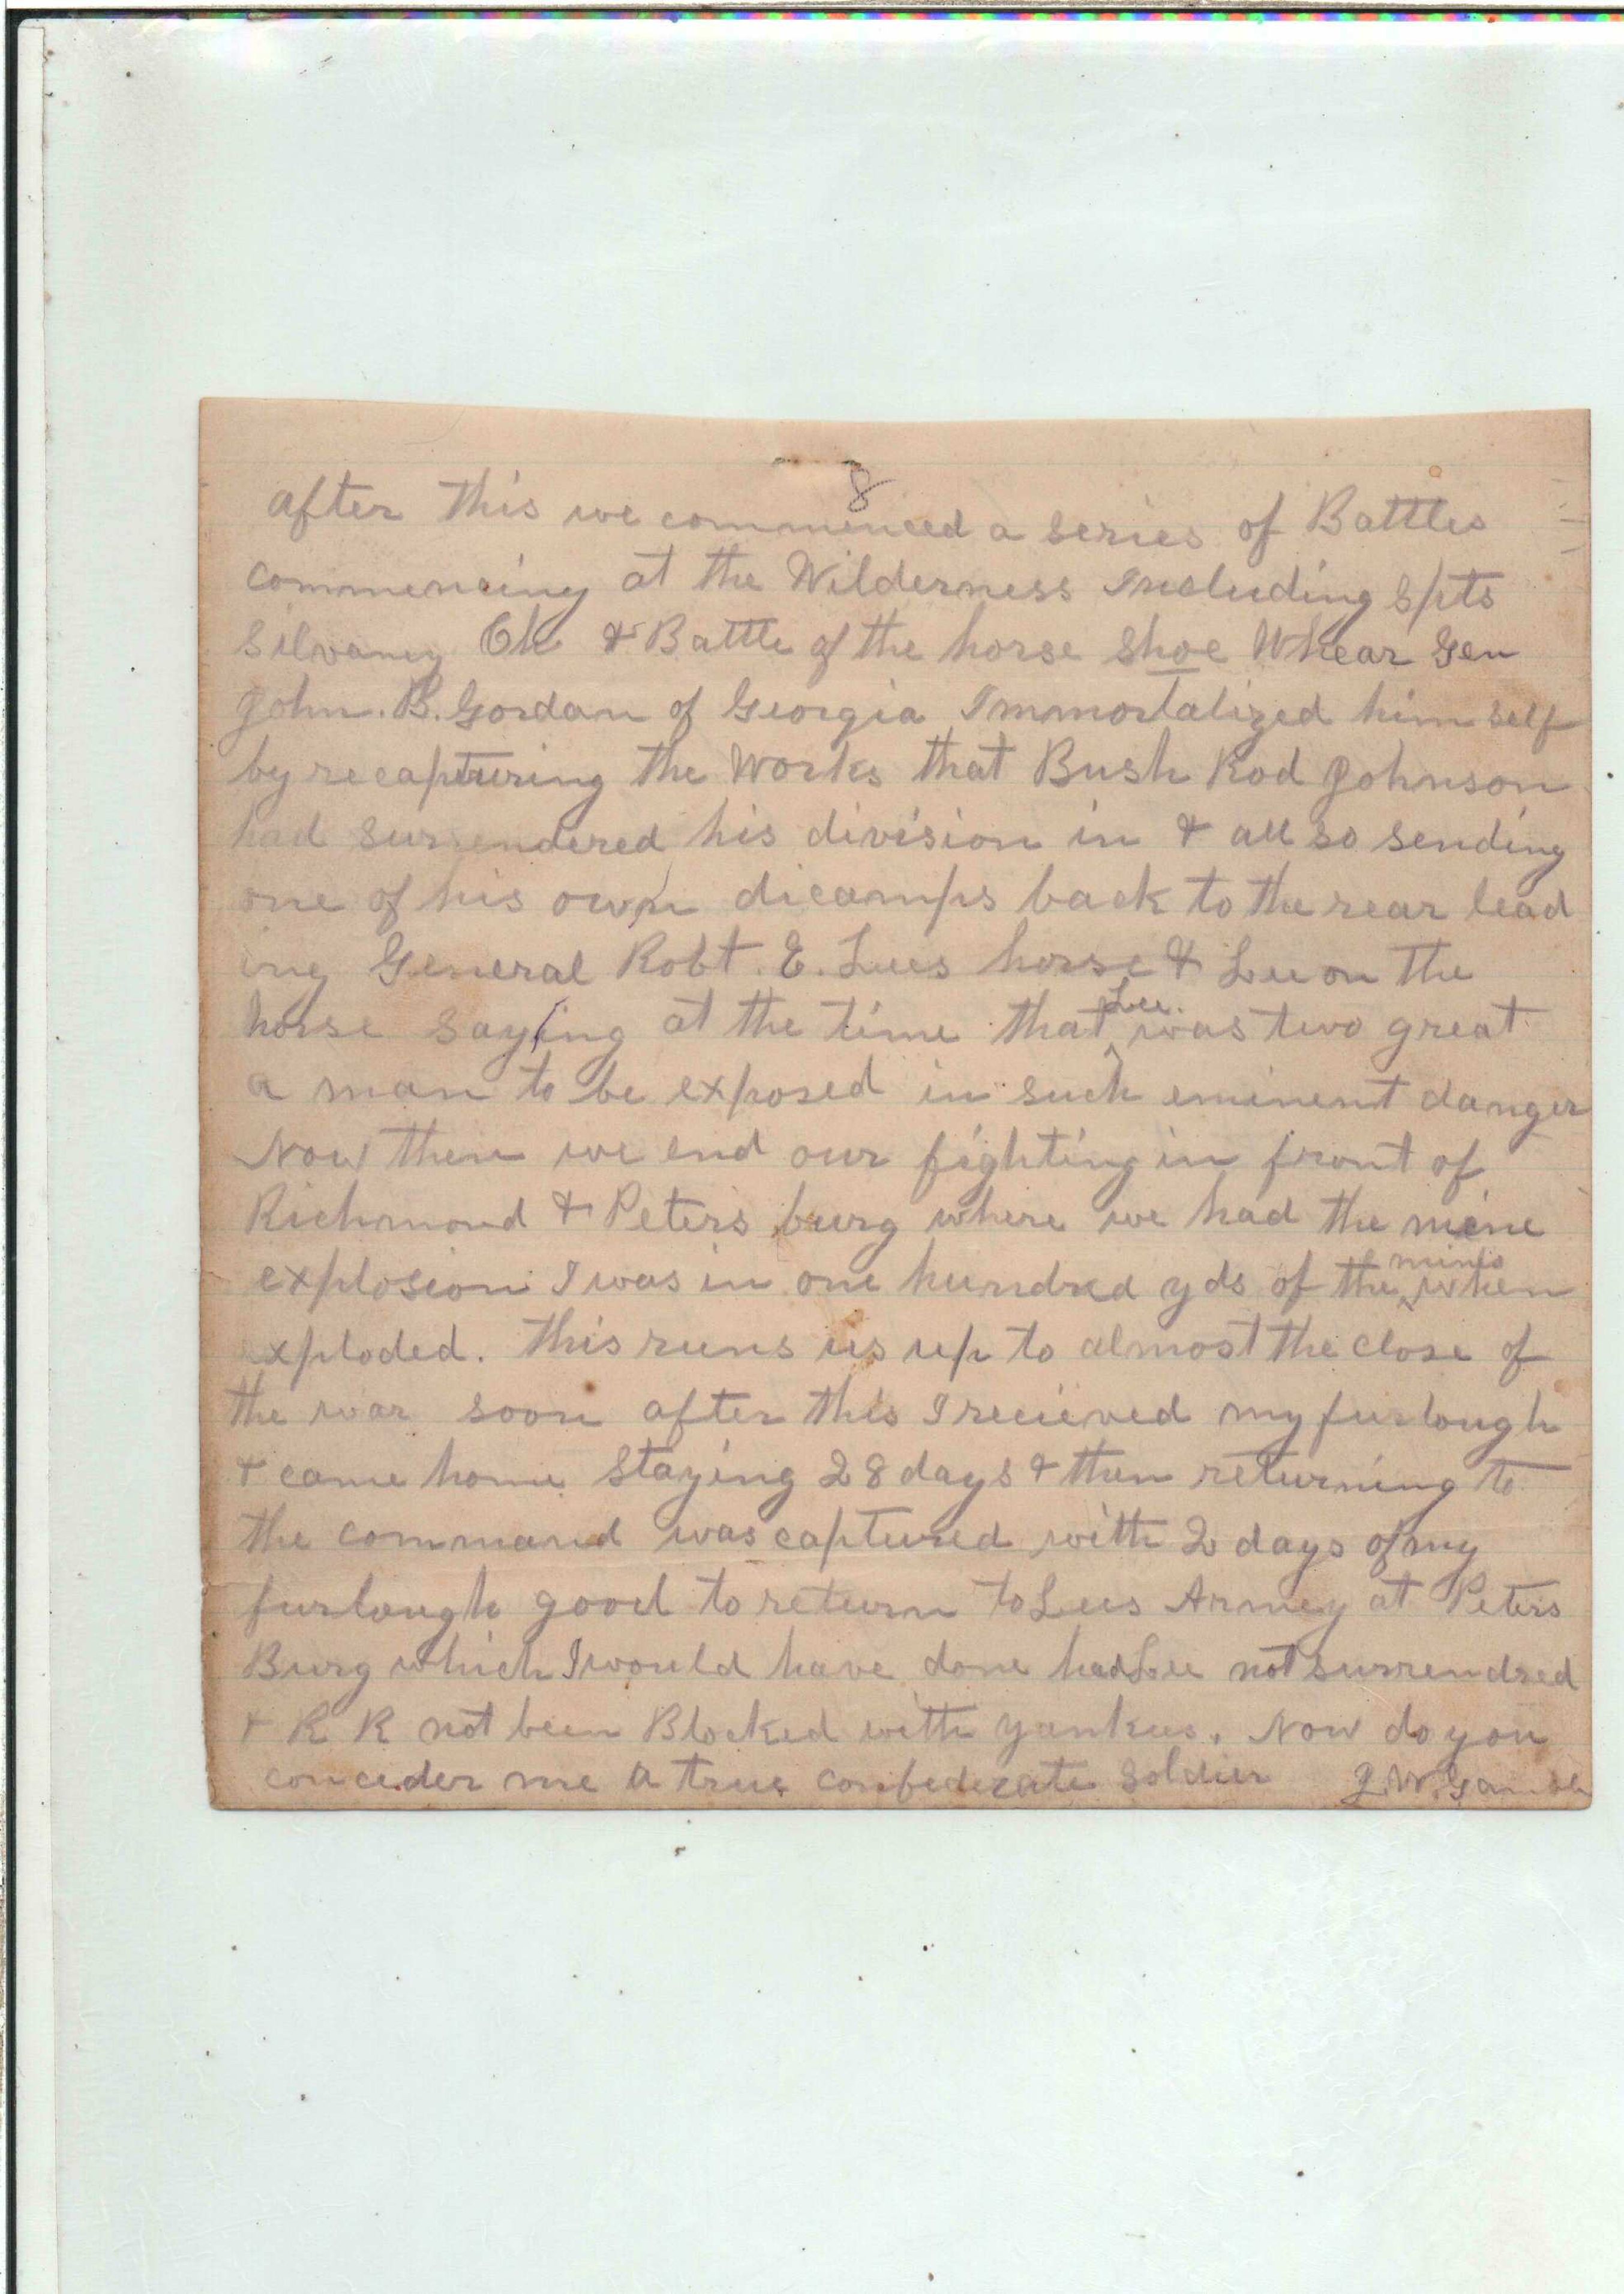 8
after this we commenced a series of Battles
commencing at the Wilderness Including Spts
silvaney Ch & Battle of the horse shoe Whear Gen
John. B. Gordan of Georgia Immortalized him self
by recapturing the Works that Bush Rod Johnson
had surrendered his division in & all so sending
one of his own dicamps back to the rear lead
ing General Robt. E. Lees horse & Lee on the
horse saying at the time that Lee. was two great
a man to be exposed in such eminent danger
Now then we end our fighting in front of
Richmond & Peters burg where we had the mine
explosion I was in one hundred yds of the mines when
exploded. this runs us up to almost the close of
the war soon after this I recieved my furlough
& came home staying 28 days & then returning to
the command was captured with 2 days of my
furlough good to return to Lees Armey at Peters
Burg which I would have done had Lee not surrendred
& R R not been Blocked with yankees. Now do you
conceder me a true confederate soldier J. W. Gamble